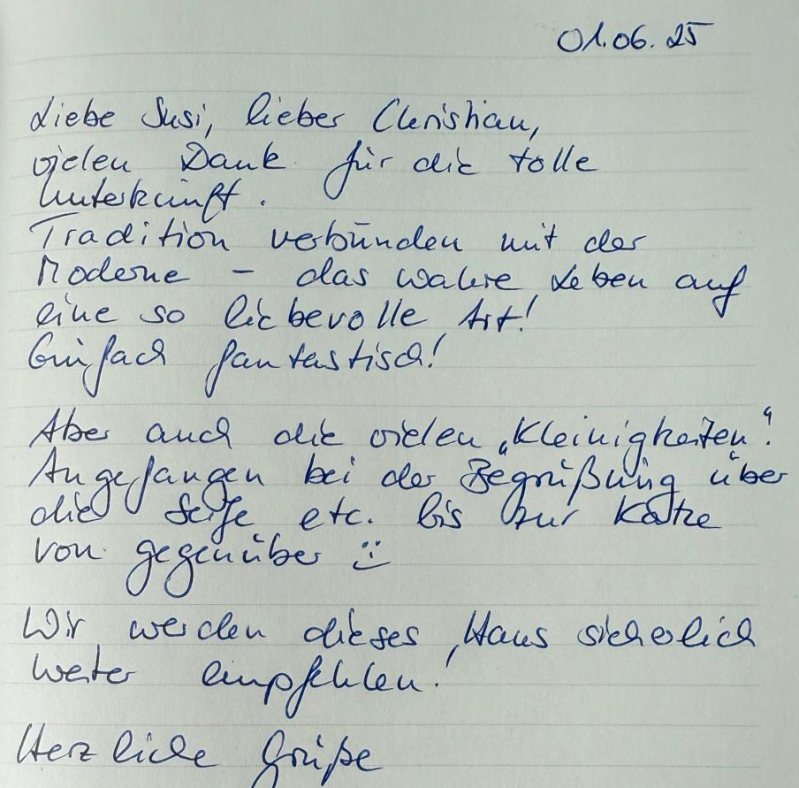 01.06.25
Liebe Susi, lieber Christian,
vielen Dank für die tolle
Unterkunft.
Tradition verbunden mit der
Moderne – das wahre Leben auf
eine so liebevolle Art!
Einfach fantastisch!
Aber auch die vielen „Kleinigkeiten“!
Angefangen bei der Begrüßung über
die Seife etc. bis zur Katze
von gegenüber :)
Wir werden dieses Haus sicherlich
weiter empfehlen!
Herzliche Grüße